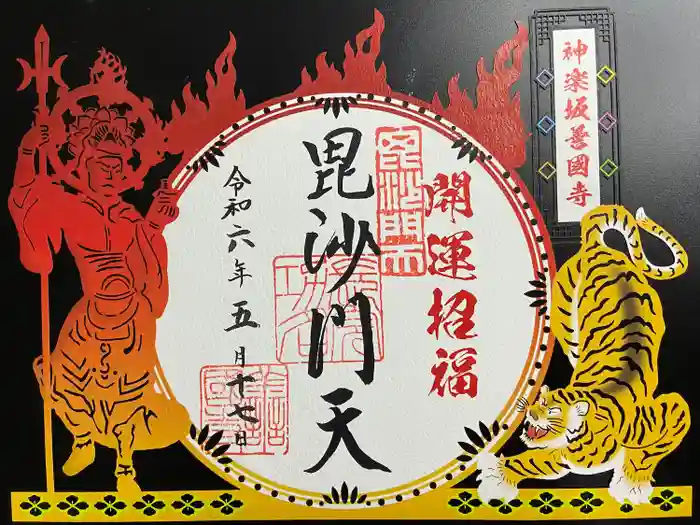 神楽坂善國寺
開運招福
毘沙門天
令和六年五月十七日